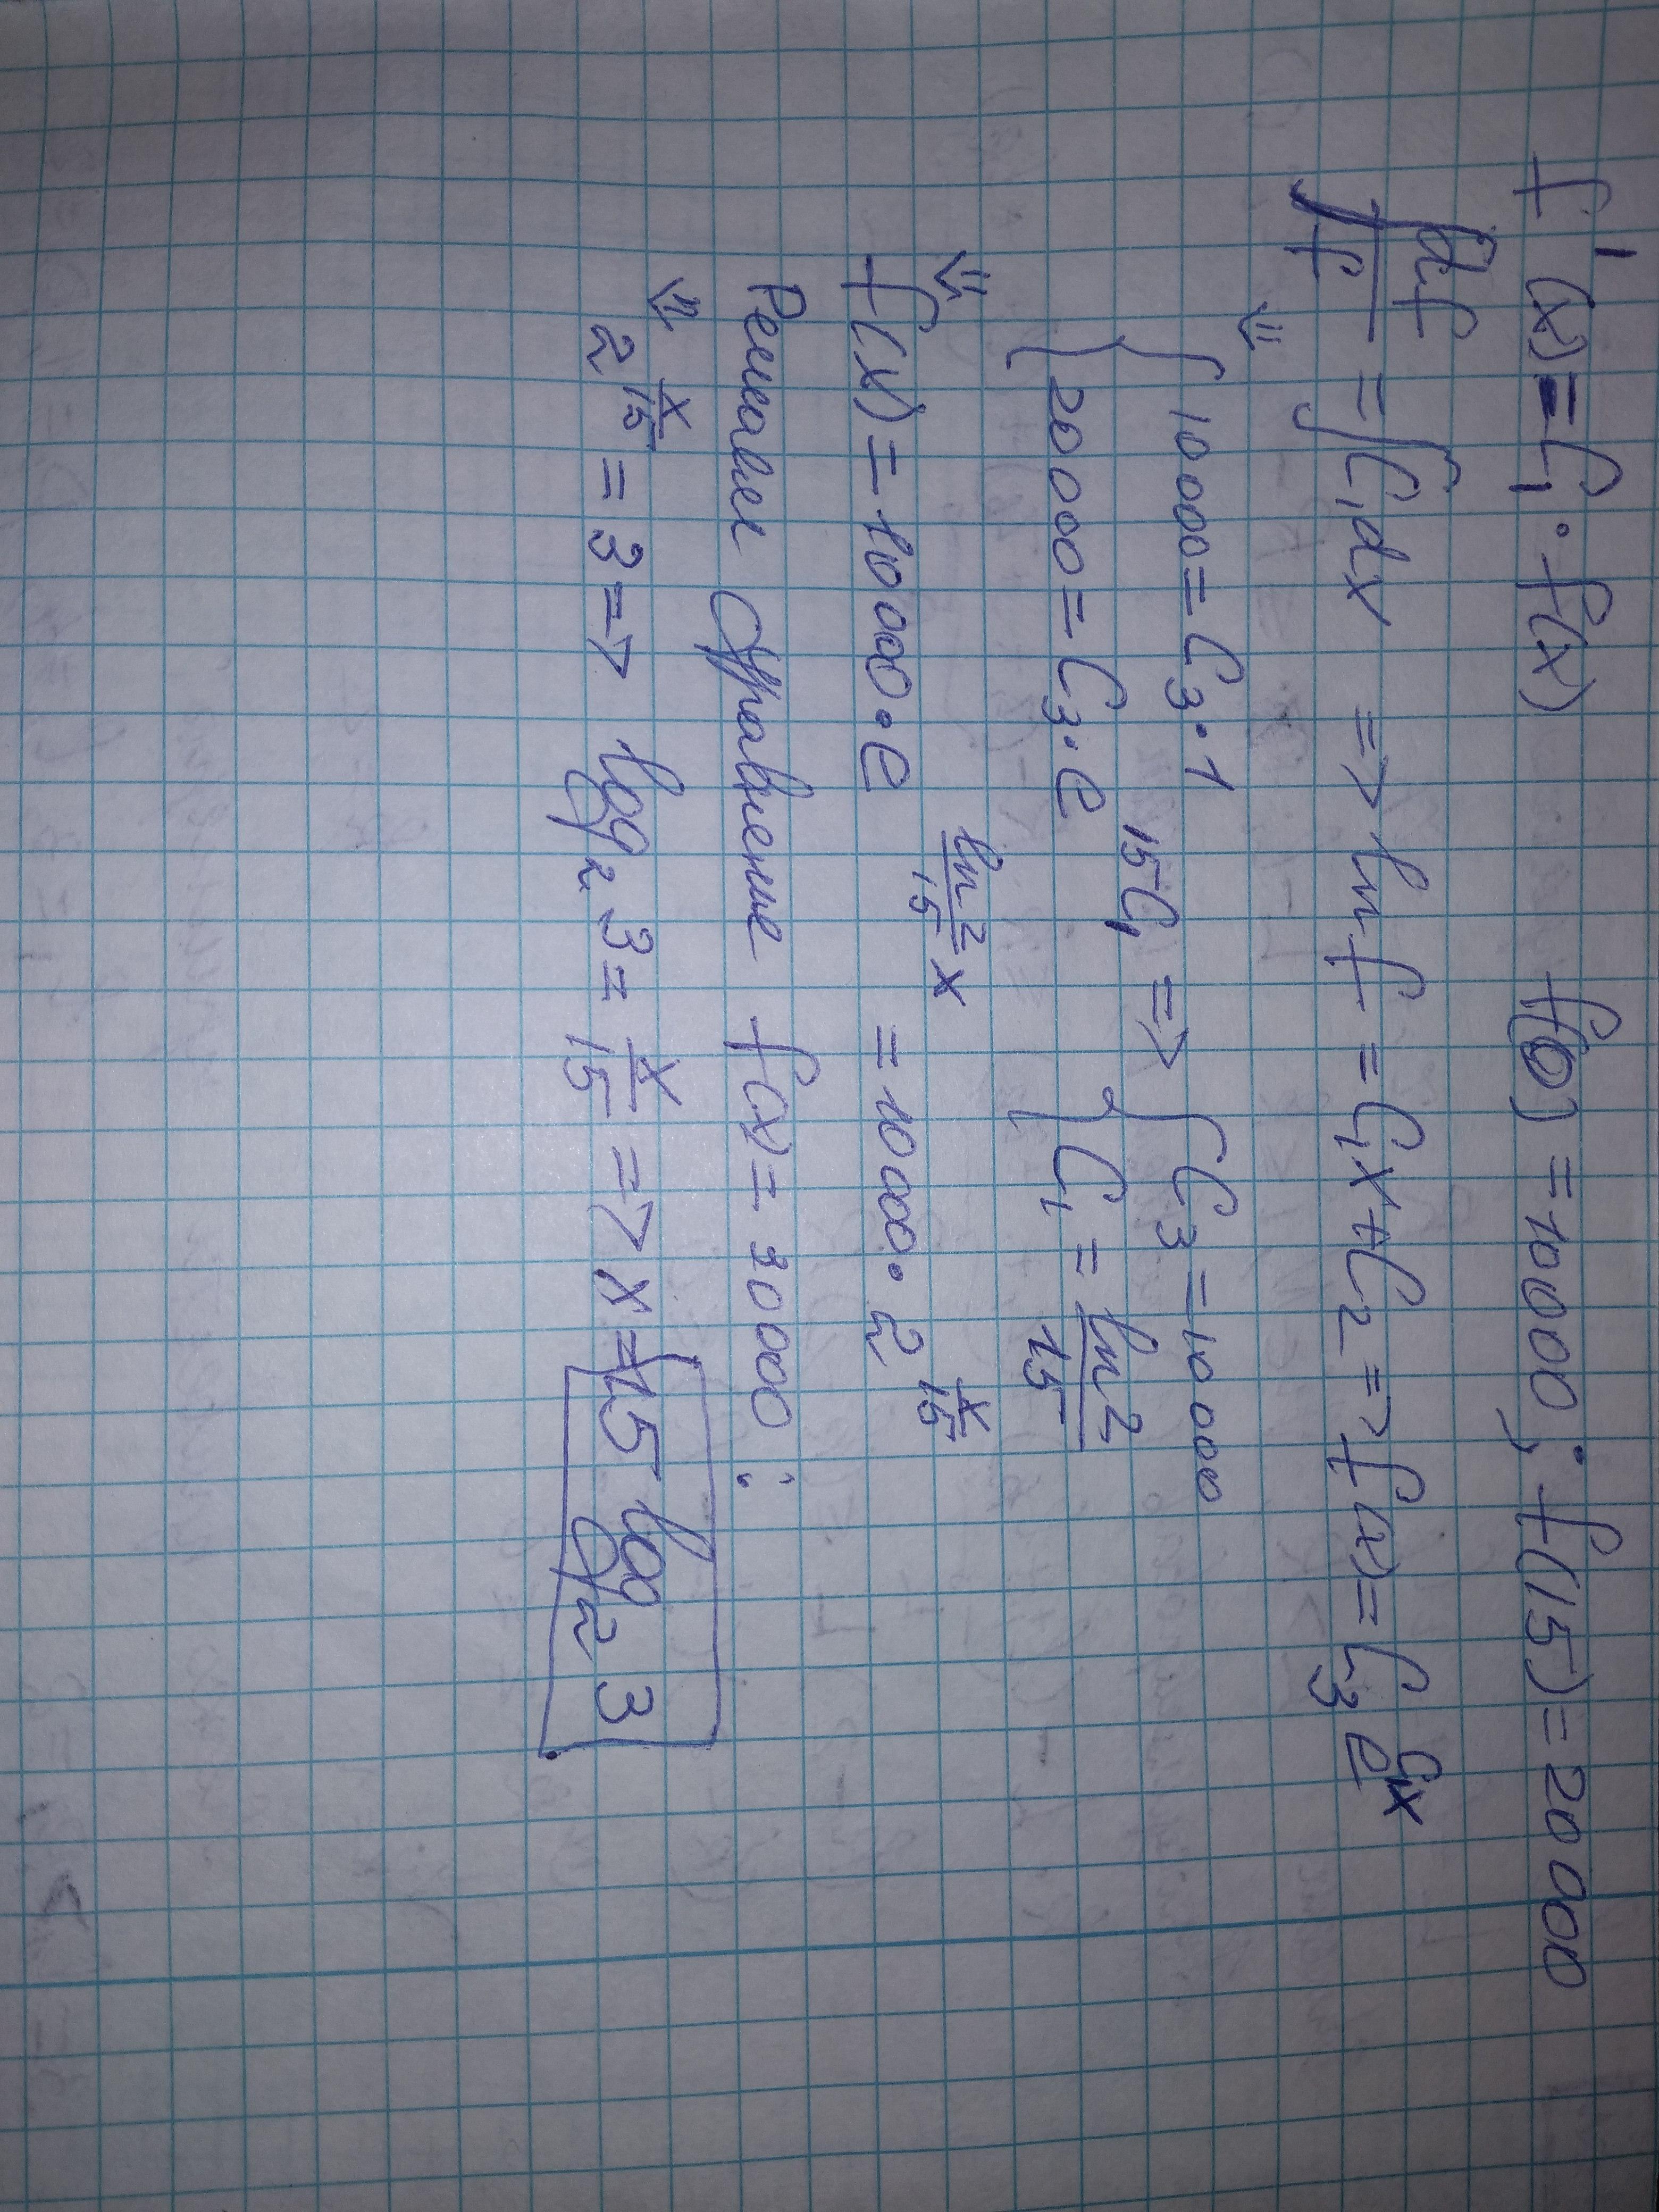 f'(x)=C₁·f(x) f(0)=10000; f(15)=20000
∫df/f=∫C₁dx => ln f = C₁x+C₂ => f(x)=C₃e^(C₁x)
⇓ { 10000=C₃·1
20000=C₃·e^(15C₁) => { C₃=10000
C₁=ln2/15
⇓
f(x)=10000·e^(ln2/15 x) = 10000·2^(x/15)
Решаем уравнение f(x)=30000:
⇓
2^(x/15)=3=> log₂3=x/15 => x=15log₂3